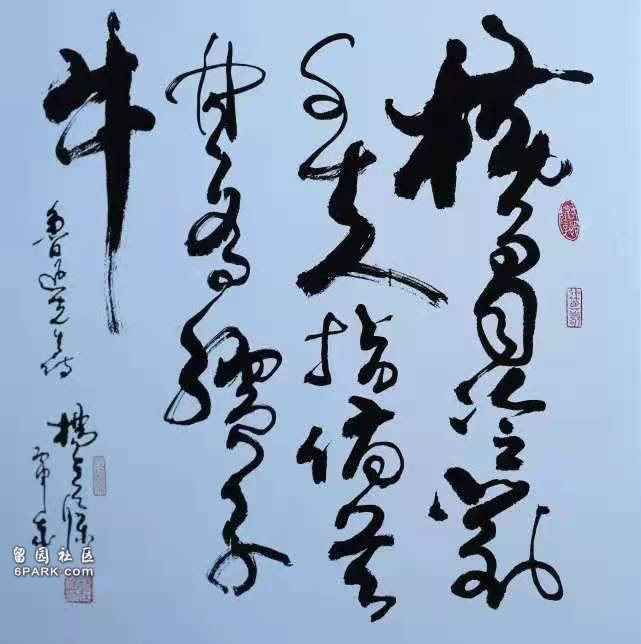 横眉冷對
千夫指俯首
甘為孺子
牛
魯迅先生诗
留园社区
6PARK.COM